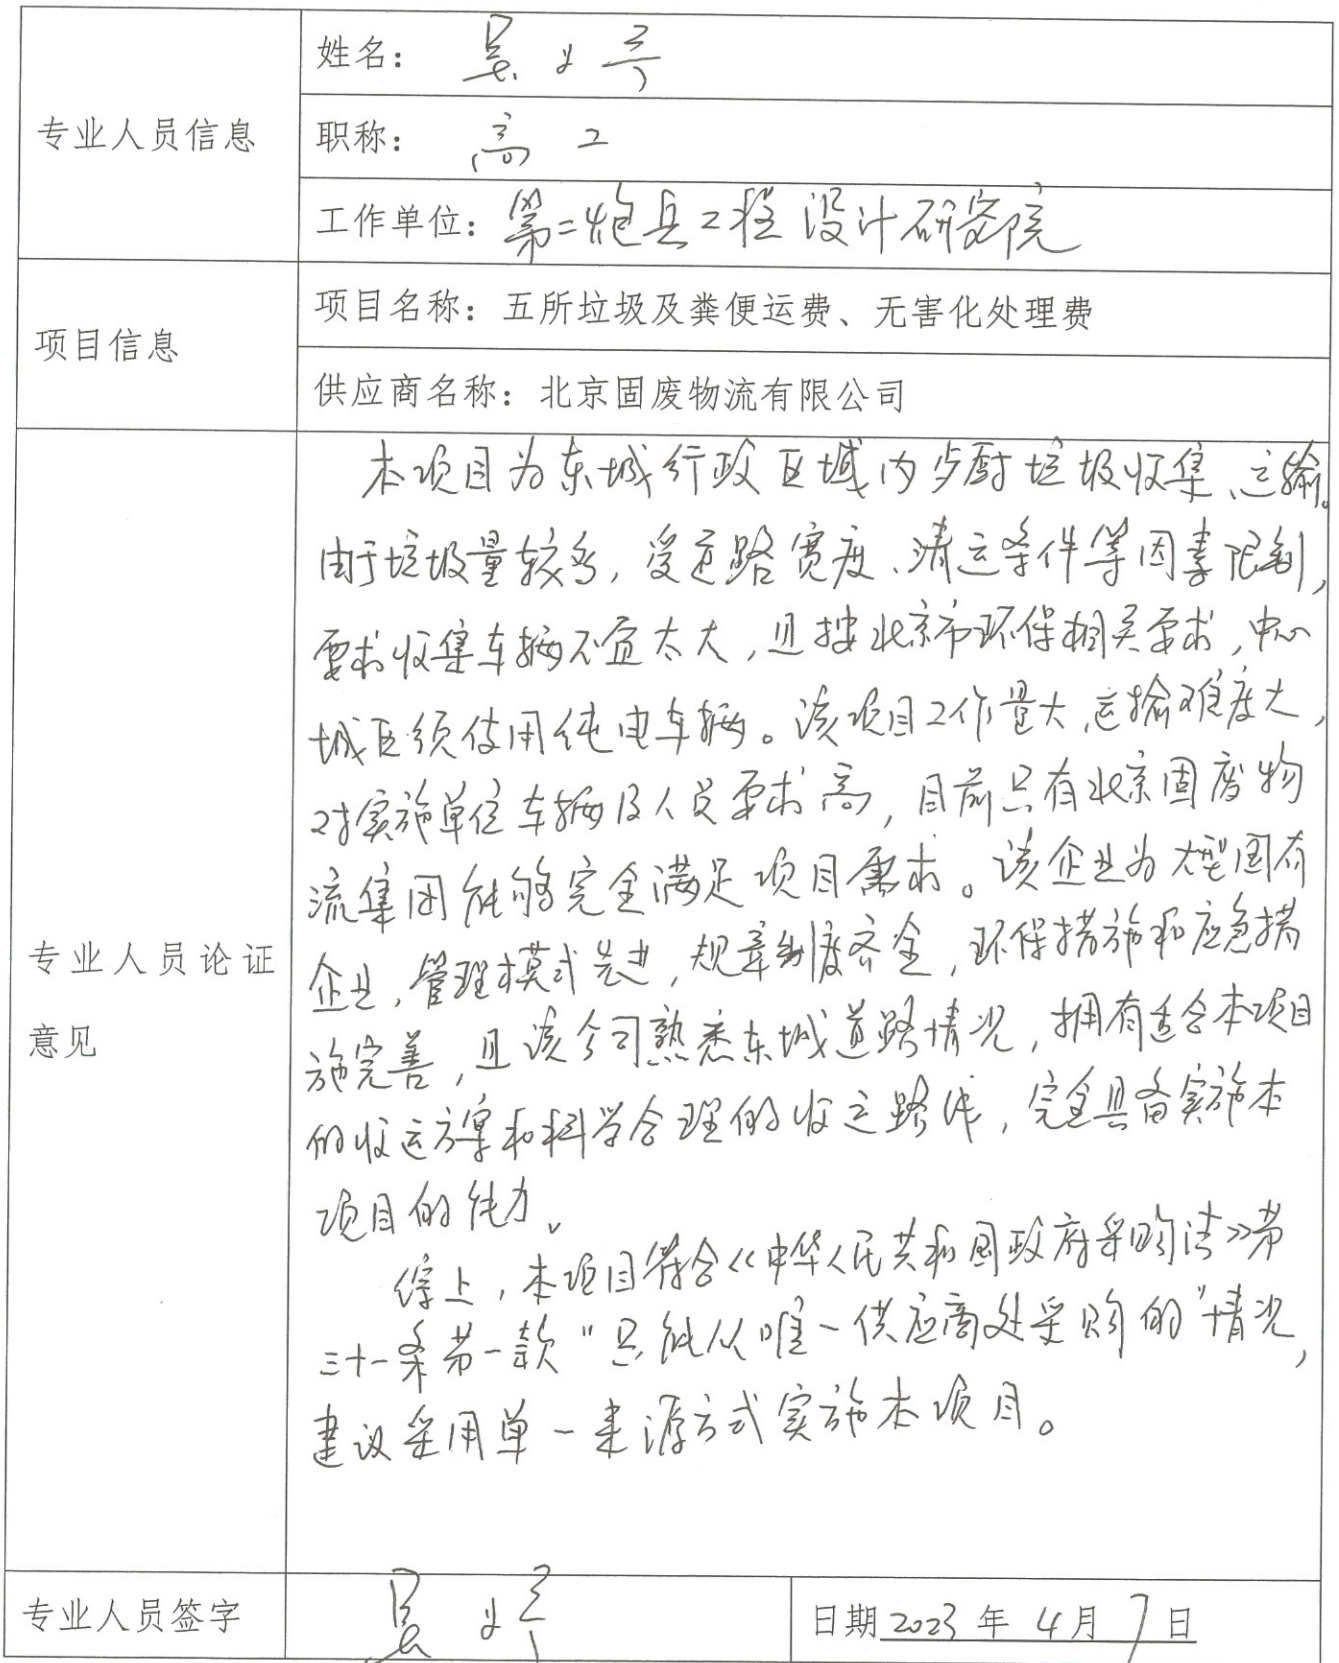 专业人员信息
姓名：
职称：高工
工作单位：第二炮兵工程设计研究院
项目信息
项目名称：五所垃圾及粪便运费、无害化处理费
供应商名称：北京固废物流有限公司
专业人员论证
意见
本项目为东城行政区域内厨垃圾收集、运输。
由于垃圾量较多，受道路宽度、清运条件等因素限制，
要求收集车辆不宜太大，且按北京市环保相关要求，中心
城区须使用纯电车辆。该项目工作量大，运输难度大，
对实施单位车辆及人员要求高，目前只有北京固废物
流集团能够完全满足项目需求。该企业为大型国有
企业，管理模式先进，规章制度齐全，环保措施和应急措
施完善，且该公司熟悉东城道路情况，拥有适合本项目
的收运方案和科学合理的收运路线，完全具备实施本
项目的能力。
综上，本项目符合《中华人民共和国政府采购法》第
三十一条第一款“只能从唯一供应商处采购的”情况，
建议采用单一来源方式实施本项目。
专业人员签字
日期2023年4月7日